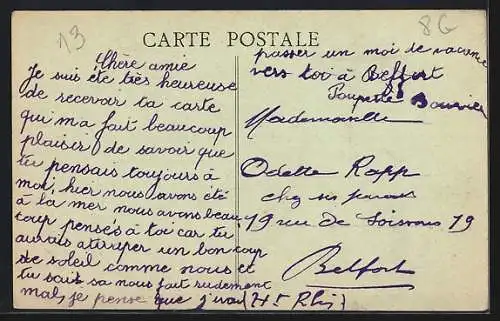 13
8G
CARTE POSTALE
Chère amie
Je suis été très heureuse
de recevoir ta carte
qui m'a fait beaucoup
plaisir de savoir que
tu pensais toujours à
moi, hier nous avons été
à la mer, nous avons beau
coup pensés à toi car tu
aurais attrapper un bon coup
de soleil comme nous et
tu sais sa nous fait rudement
mal, je pense que j'irai
passer un moi de vacance
vers toi à Belfort
Mademoiselle
Odette Rapp
chez ses parents
19 rue de Soissons 19
Belfort
(Ht Rhin)